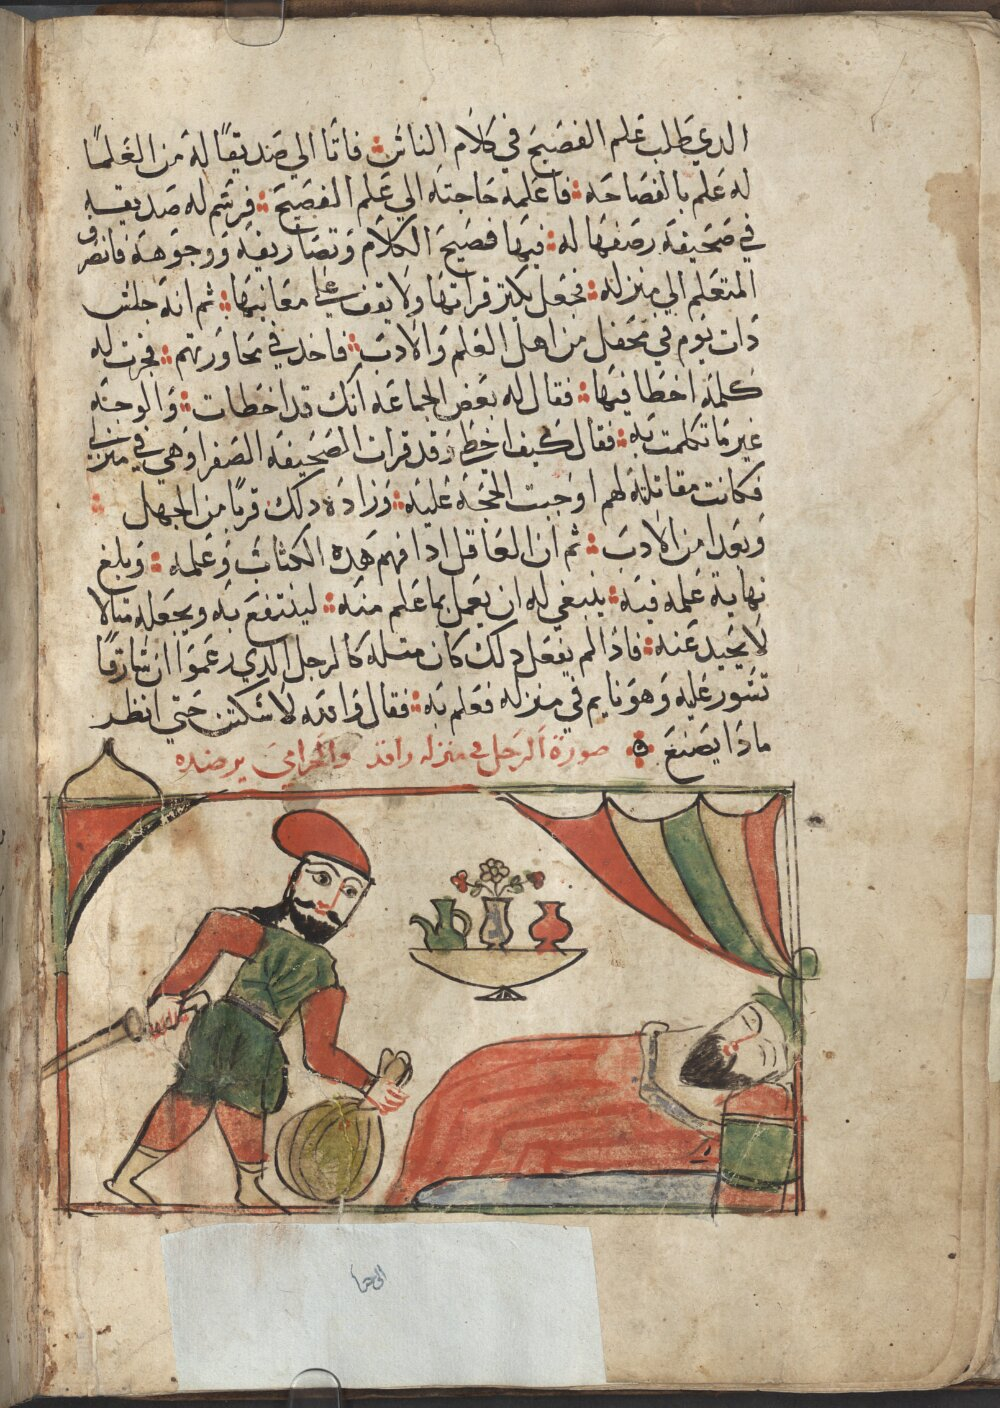 الدي طلب علم الفصيح في كلام الناس فاتا الي صديقًا له من العلما
له علم بالفصاحه فاعلمه حاجته الي علم الفصيح فرسم له صديقه
في صحيفه رصفها له فيها فصيح الكلام وتصاريفه ووجوهه فانصرف
المتعلم الي منزله فجعل يكتر قراتها ولا يقف علي معانيها ثم انه جلس
دات يوم في محفل من اهل العلم والادب فاخد في محاورتهم فجرت له
كلمه اخطا فيها فقال له بعض الجماعه انك قد اخطات والوجه
غير ما تكلمت به فقال كيف اخطي وقد قرات الصحيفه الصفرا وهي في منزلي
فكانت مقالته لهم اوجبت الحجه عليه وزاده دلك قربًا من الجهل
وبعدا من الادب ثم ان العاقل ادا فهم هده الكتاب وعلمه وبلغ
نهاية علمه فيه ينبغي له ان يعمل بما علم منه لينتفع به ويجعله متالا
لا يحيد عنه فادا لم يفعل دلك كان متله كالرجل الدي زعموا ان سارقًا
تسور عليه وهو نايم في منزله فعلم به فقال والله لاسكتن حتي انظر
مادا يصنع
صورة الرجل في منزله راقد والحرامي يرصده
الى هنا